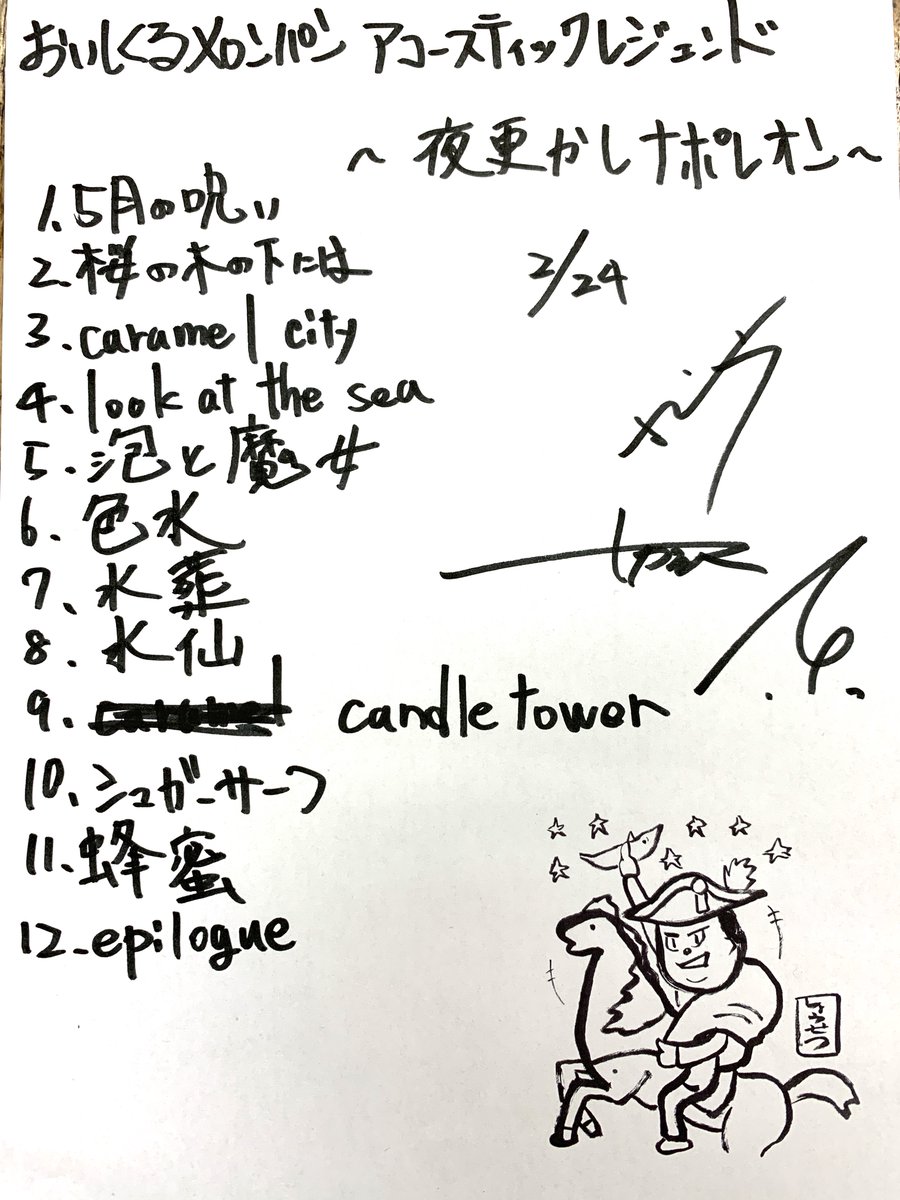 おいしくるメロンパン アコースティックレジェンド
〜夜更かしナポレオン〜
2/24
1. 5月の呪い
2. 桜の木の下には
3. caramel city
4. look at the sea
5. 泡と魔女
6. 色水
7、水葬
8. 水仙
9. candle tower
10、シュガーサーフ
11、蜂蜜
12. epilogue
しょうせつ